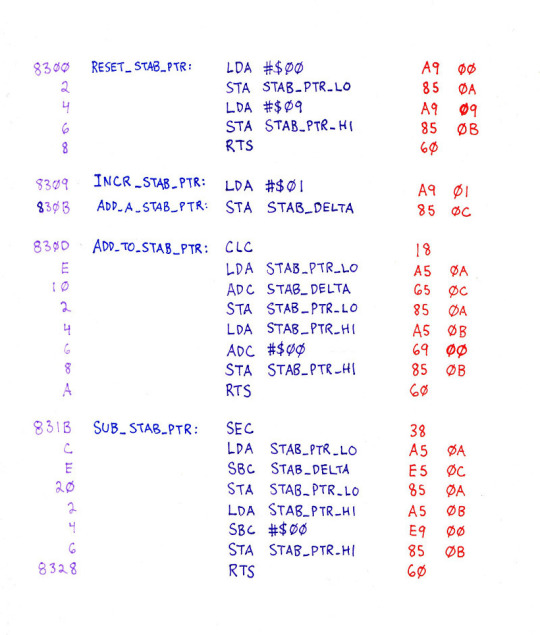 83ØØ RESET_STAB_PTR: LDA #$ØØ A9 ØØ
2 STA STAB_PTR_LO 85 ØA
4 LDA #$Ø9 A9 Ø9
6 STA STAB_PTR_HI 85 ØB
8 RTS 6Ø
83Ø9 INCR_STAB_PTR: LDA #$Ø1 A9 Ø1
83ØB ADD_A_STAB_PTR: STA STAB_DELTA 85 ØC
83ØD ADD_TO_STAB_PTR: CLC 18
E LDA STAB_PTR_LO A5 ØA
1Ø ADC STAB_DELTA 65 ØC
2 STA STAB_PTR_LO 85 ØA
4 LDA STAB_PTR_HI A5 ØB
6 ADC #$ØØ 69 ØØ
8 STA STAB_PTR_HI 85 ØB
A RTS 6Ø
831B SUB_STAB_PTR: SEC 38
C LDA STAB_PTR_LO A5 ØA
E SBC STAB_DELTA E5 ØC
2Ø STA STAB_PTR_LO 85 ØA
2 LDA STAB_PTR_HI A5 ØB
4 SBC #$ØØ E9 ØØ
6 STA STAB_PTR_HI 85 ØB
8328 RTS 6Ø